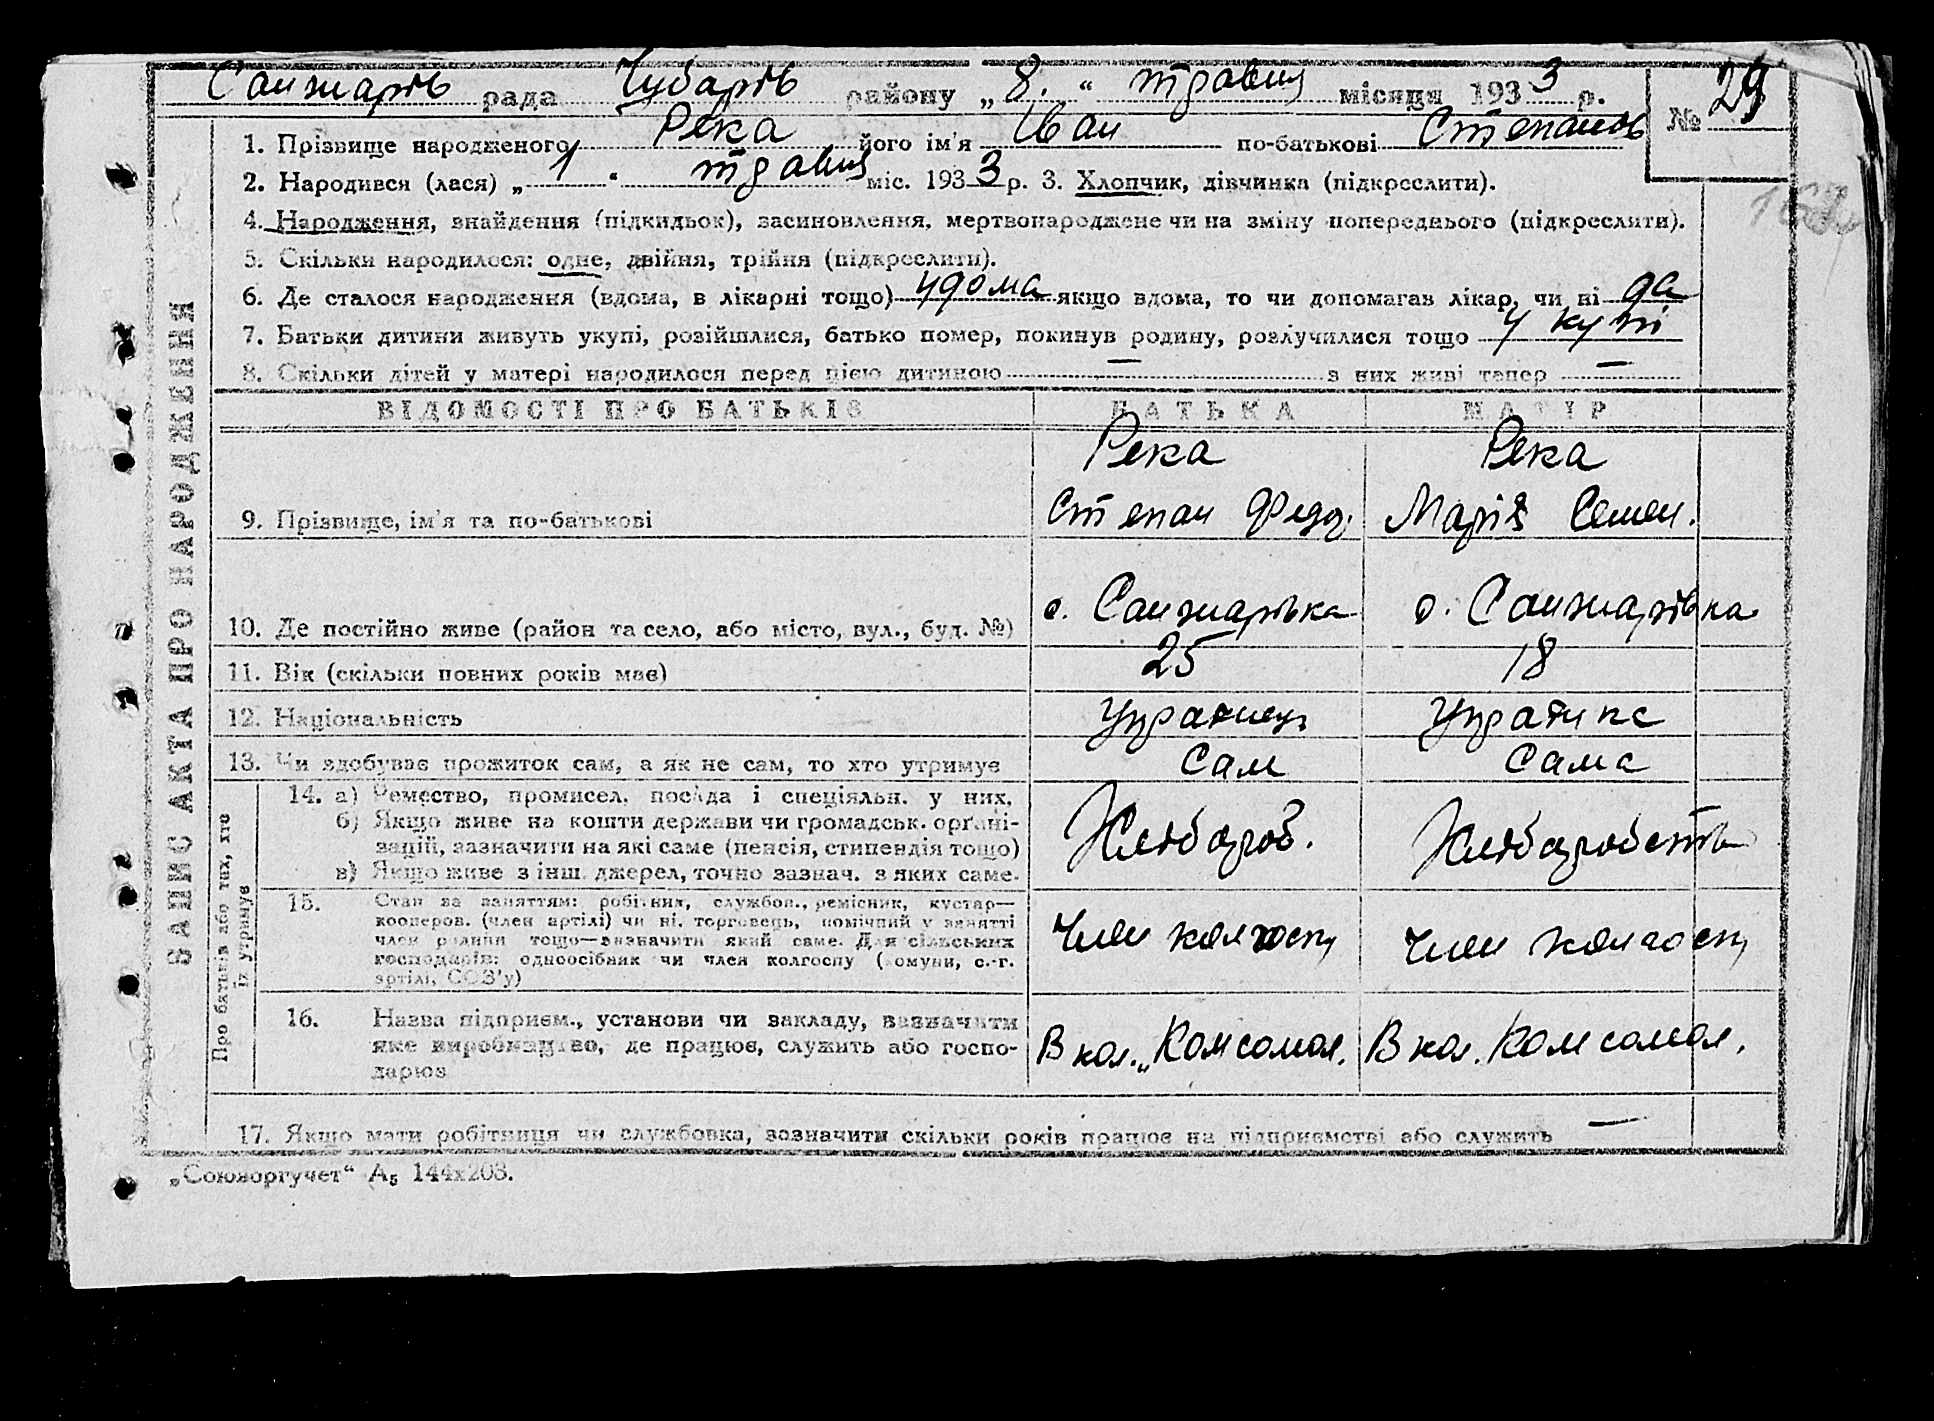 Санжарів рада Чубарів району „8.“ травня місяця 1933 р. № 29
1. Прізвище народженого Река його ім'я Іван по-батькові Степанов
2. Народився (лася) „1“ травня міс. 1933 р. 3. Хлопчик, дівчинка (підкреслити).
4. Народження, знайдення (підкидьок), засиновлення, мертвонароджене чи на зміну попереднього (підкреслити).
5. Скільки народилося: одне, двійня, трійня (підкреслити).
6. Де сталося народження (вдома, в лікарні тощо) удома якщо вдома, то чи допомагав лікар, чи ні да
7. Батьки дитини живуть укупі, розійшлися, батько помер, покинув родину, розлучилися тощо у купі
8. Скільки дітей у матері народилося перед цією дитиною — з них живі тепер —
ЗАПИС АКТА ПРО НАРОДЖЕННЯ
ВІДОМОСТІ ПРО БАТЬКІВ БАТЬКА МАТІР
Река Река
9. Прізвище, ім'я та по-батькові Степан Федор. Марія Семен.
10. Де постійно живе (район та село, або місто, вул., буд. №) с. Санжарівка с. Санжарівка
11. Вік (скільки повних років має) 25 18
12. Національність Українець Українка
13. Чи здобуває прожиток сам, а як не сам, то хто утримує Сам Сама
Про батьків або тих, хто їх утримує
14. а) Ремество, промисел, посада і спеціяльн. у них.
б) Якщо живе на кошти держави чи громадськ. орґані-
зацій, зазначити на які саме (пенсія, стипендія тощо) Хлібороб. Хліборобство
в) Якщо живе з інш. джерел, точно зазнач. з яких саме.
15. Стан за заняттям: робітник, службов., ремісник, кустар—
кооперов. (член артілі) чи ні, торговець, помічний у занятті
член родини тощо—зазначити який саме. Для сільських
господарів: одноосібник чи член колгоспу (комуни, с.-г.
артілі, СОЗ'у) Член колгоспу Член колгоспу
16. Назва підприєм., установи чи закладу, зазначити
яке виробництво, де працює, служить або госпо-
дарює В кол. „Комсомол. В кол. Комсомол.
17. Якщо мати робітниця чи службовка, зазначити скільки років працює на підприємстві або служить —
„Союзоргучет“ А₅ 144х203.